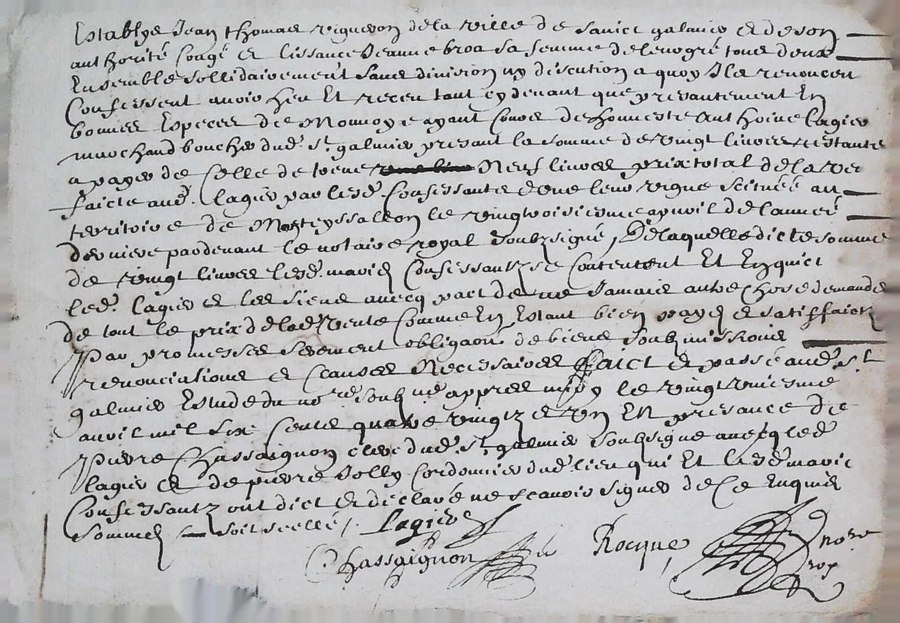 Establys Jean Thomas vigneron de la ville de Sainct Galmier et de son
authorité congé et lissance Jeanne broa sa femme de leur gré tous deux
Ensemble sollidairement sans division ny discution a quoy Ils renoncent
Confessent avoir heu Et receu tant cy devant que presantement En
bonnes Especes de Monnoye ayant Cours de honneste Anthoine Lagier
marchand boucher dud. St galmier presant la somme de vingt livres restante
a payer de Celle de trente neuf livres prix total de la vente
faicte aud. Lagier par lesd. Confessants d'une leur vigne scituée au
territoire de le vingtroisiesme apvril de l'année
derniere pardevant le notaire royal soubzsigné, De laquelle dicte somme
de vingt livres lesd. mariés Confessantz se contentent Et En quict
led. Lagier et les siens avecq pact de ne Jamais autre chose demander
de tout le prix de lad. vente Comme En Estant bien payés et satisfaictz
Par promesses serement obligaon de biens soubzmissions
renonciations et clauses Necessaires faict et passé aud. St
galmier Estude du nore soubzné appres midy le vingt
avril mil six Cents quatre vingtz et un En presance de
Pierre Chassaignon clerc dud. St galmier soubsigné avecq led.
Lagier et de pierre Jolly Cordonnier dud. lieu qui Et lesd. mariés
Confessantz ont dict et declaré ne scavoir signer de Ce Enquis
Sommés soit scellé /. Lagier
Chassaignon Rocque nore
roy